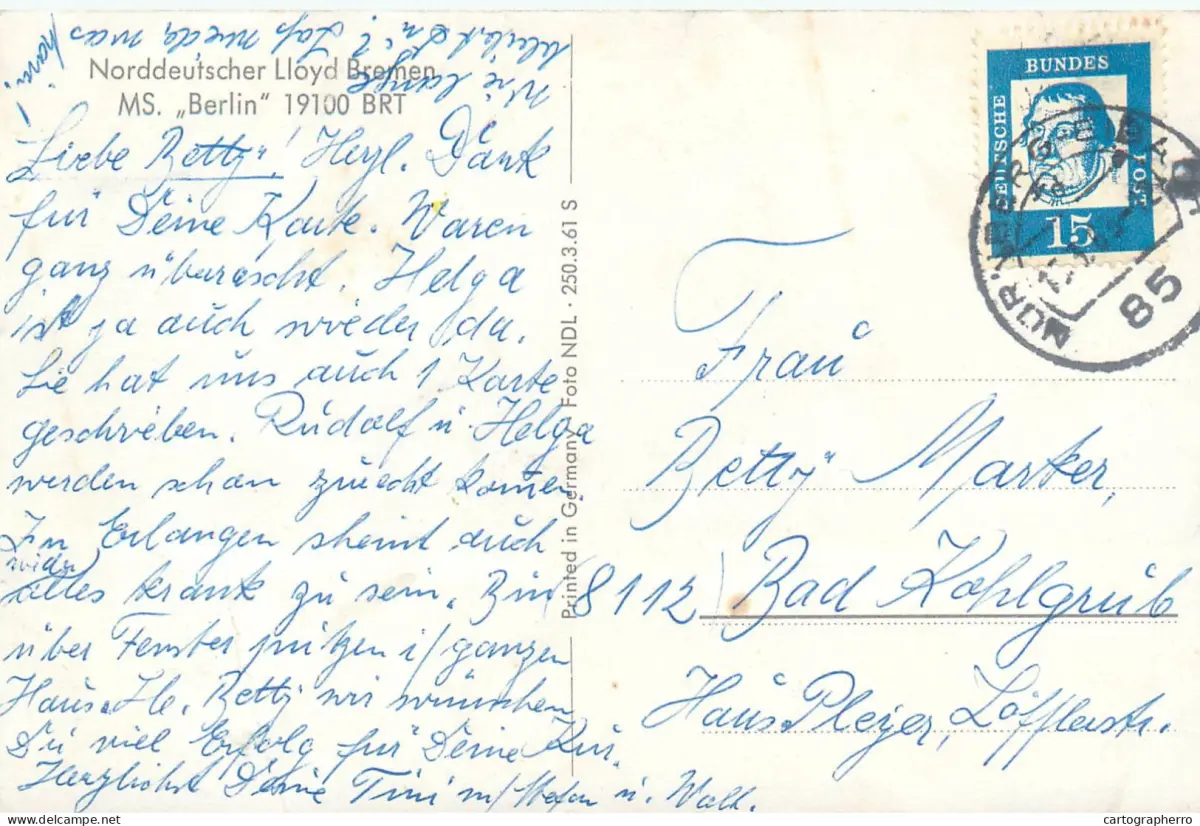 Norddeutscher Lloyd Bremen
MS. „Berlin" 19100 BRT
Liebe Betty! Herzl. Dank
für Deine Karte. Waren
ganz überrascht. Helga
ist ja auch wieder da.
Sie hat uns auch 1 Karte
geschrieben. Rudolf u. Helga
werden schon zurecht kommen.
In Erlangen scheint auch
wieder
alles krank zu sein. Bin
über Fenster putzen i/ ganzen
Haus. Lb. Betty wir wünschen
Du viel Erfolg für Deine Kur.
Herzlichst Deine Tini m/ Stefan u. Walt.
Wie lange
bleibst Du? Laß wieder was
hören!
Printed in Germany Foto NDL · 250.3.61 S
DEUTSCHE
BUNDES
POST
15
NÜRNBERG
85
Frau
Betty Marker,
(8112) Bad Kohlgrub
Haus Pleyer, Löfflerstr.
cartographerro